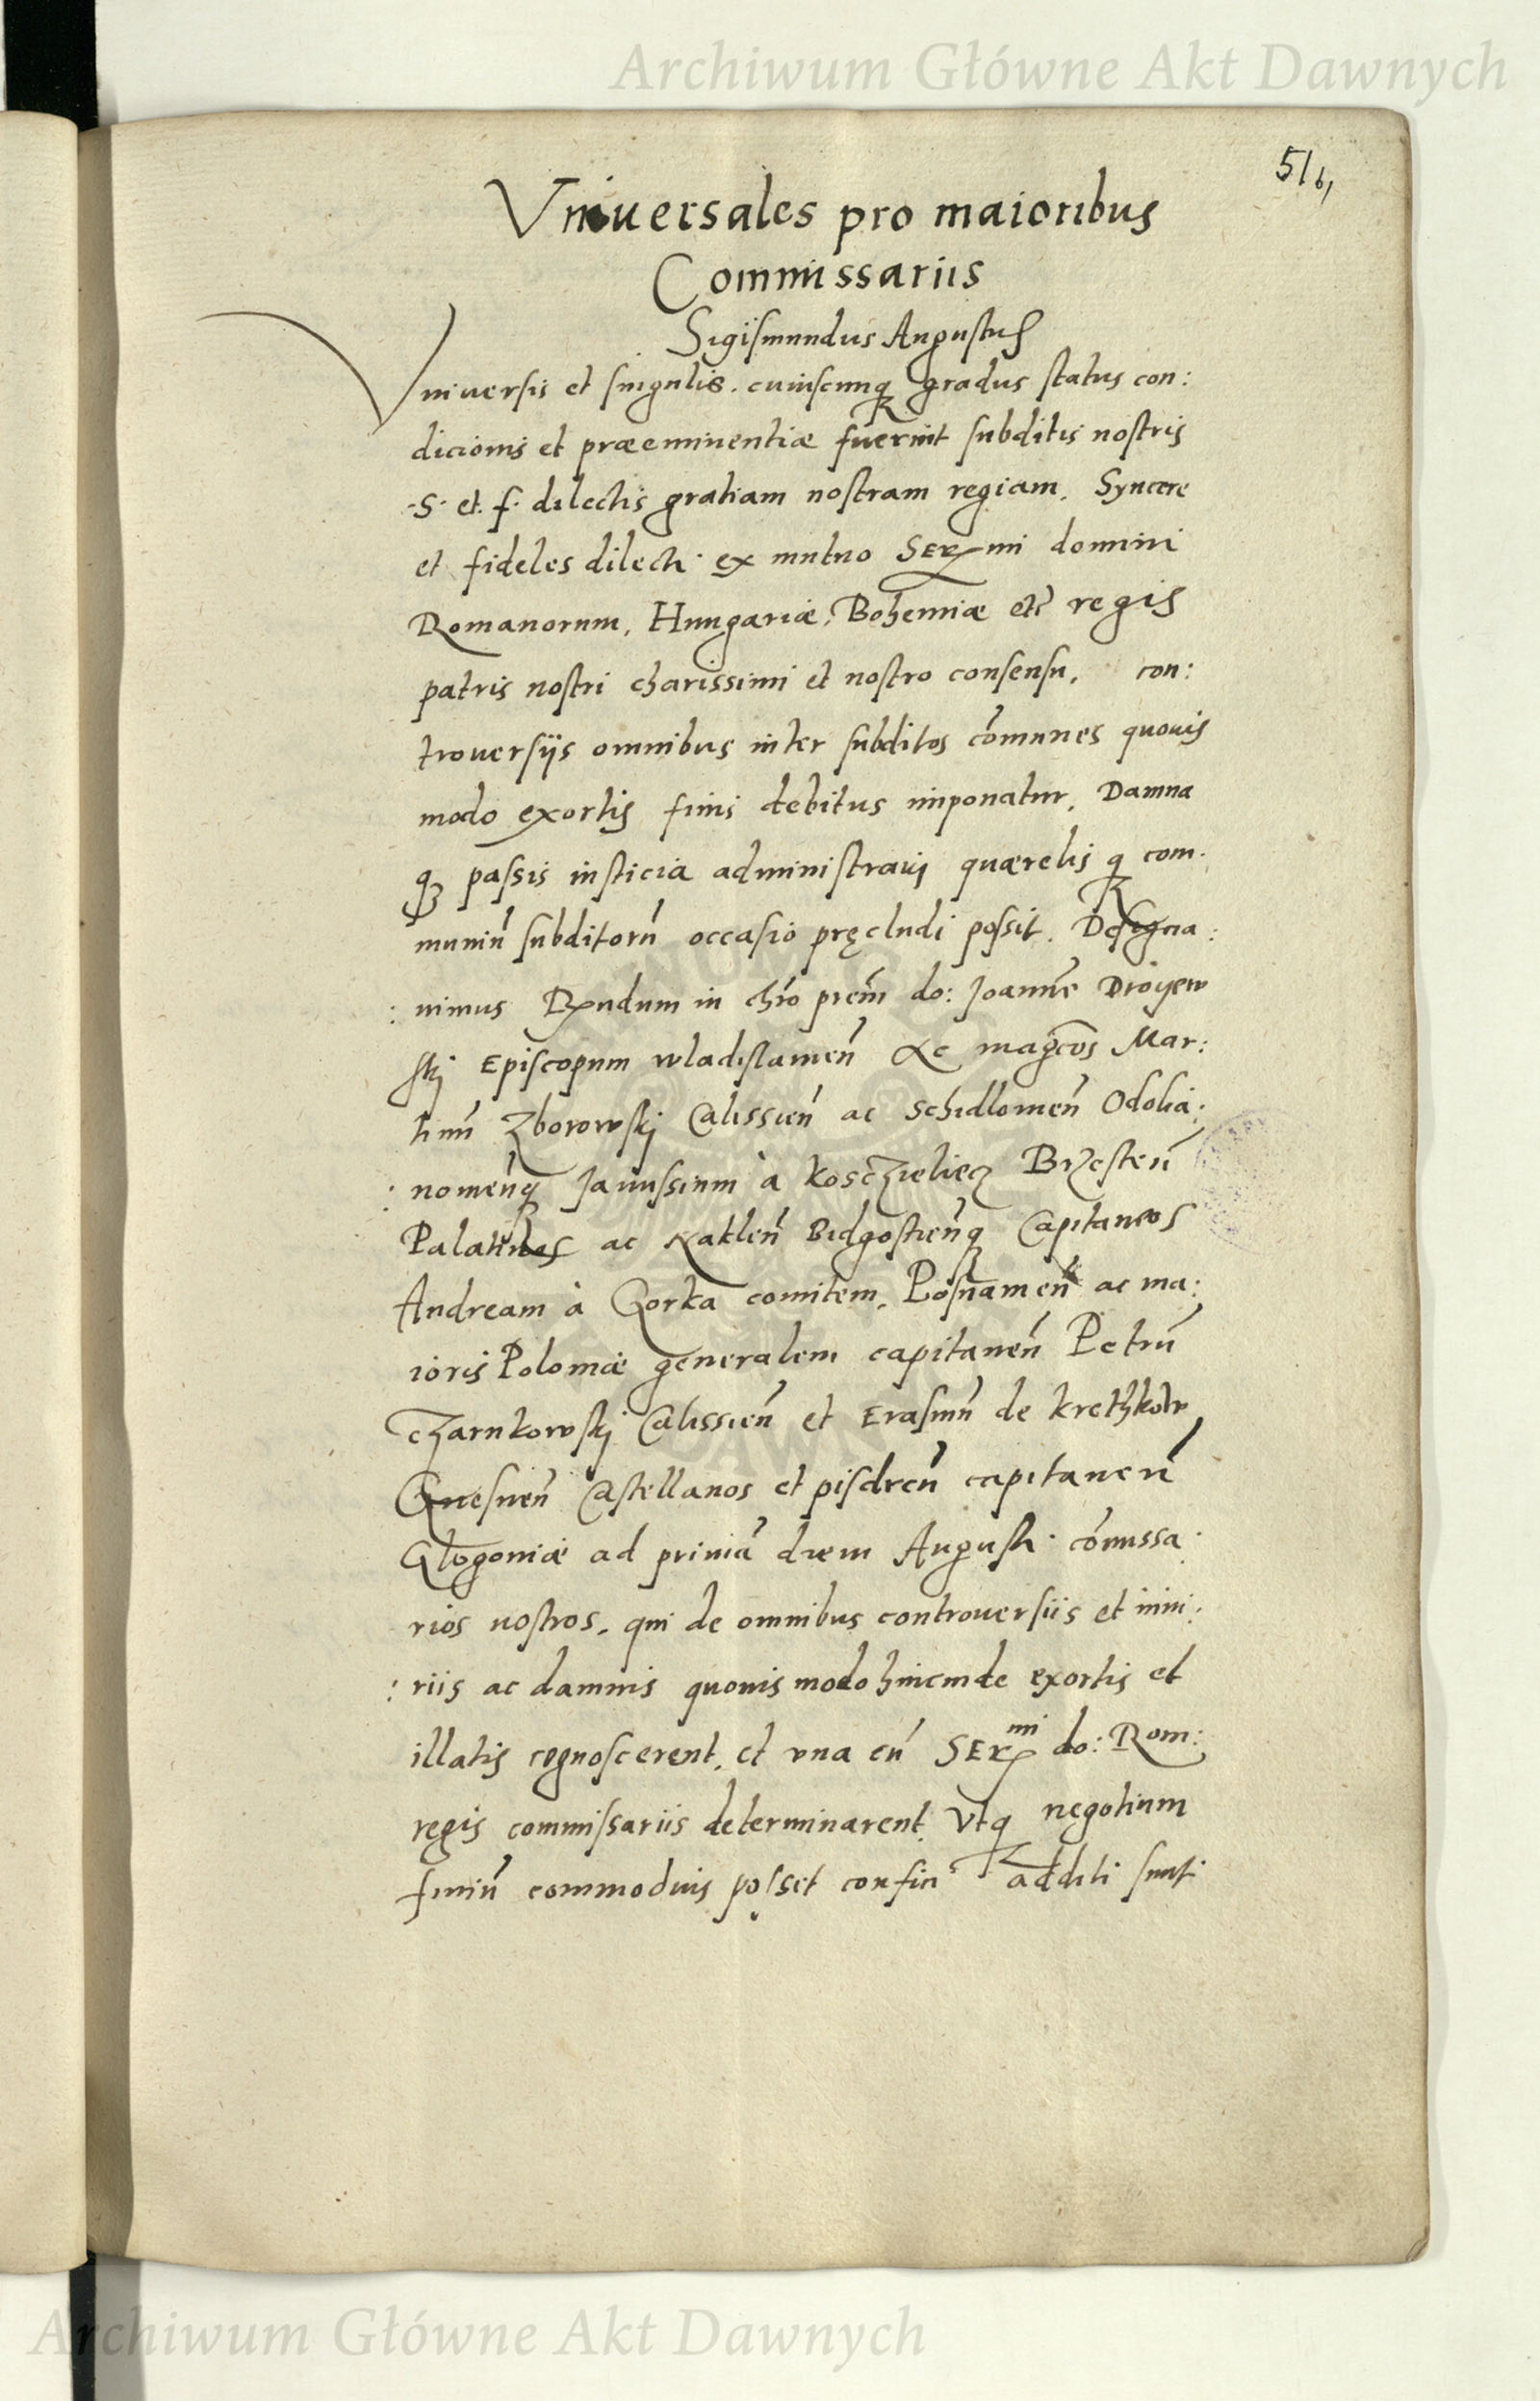 Archiwum Główne Akt Dawnych
Vniuersales pro maioribus
Commissariis
Sigismundus Augustus
Vniuersis et singulis. cuiuscunq gradus status con:
dicionis et præeminentiæ fuerint subditis nostris
S. et. f. dilectis gratiam nostram regiam. Syncere
et fideles dilecti. ex mutuo Sermi domini
Romanorum, Hungariæ, Bohemiæ etc regis
patris nostri charissimi et nostro consensu, con:
trouersijs omnibus inter subditos cõmunes quouis
modo exortis finis debitus imponatur, Damna
q passis iusticia administrari quærelis q com.
muniũ subditorũ occasio pręcludi possit. Designa:
:uimus Rndum in chro prem do: Joannẽ Droyew
skj Episcopum wladislauieñ Ac magcos Mar:
tinũ Zborowskj Calissieñ ac Schidlouieñ Odolia:
:nouieñq Janussium à Kosczieliecz Brzesteñ
Palatinos ac Nakleñ Bidgostieñq Capitaneos
Andream à Gorka comitem, Posnanieñ ac ma:
ioris Poloniæ generalem capitaneũ Petrũ
Czarnkowskj Calissieñ et Erasmũ de kretzkow
Gnesneñ Castellanos et pisdreñ capitaneũ
Glogoniæ ad primã diem Augusti. cõmissa
rios nostros, qui de omnibus controuersiis et iniu:
:riis ac damnis quouis modo hincinde exortis et
illatis cognoscerent, et vna cũ Sermi do: Rom:
regis commissariis determinarent, Vtq negotium
finiũ commodius posset confici additi sunt
Archiwum Główne Akt Dawnych